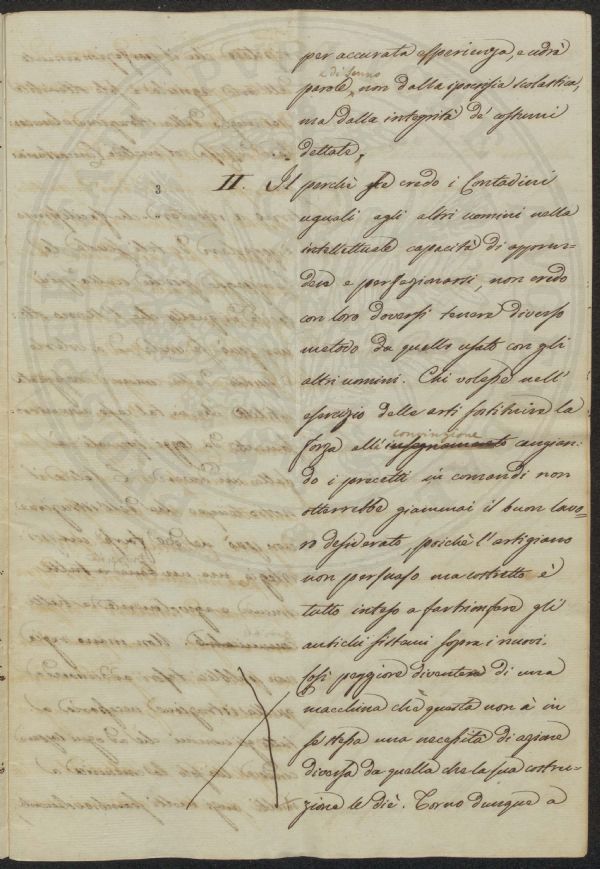 per accurata esperienza, e udrà
e di senno
parole, non dalla ipocrisia scolastica,
ma dalla integrità de' costumi
dettate.
3
II. Il perchè se credo i Contadini
uguali agli altri uomini nella
intellettuale capacità di appren-
dere e perfezionarsi, non credo
con loro doversi tenere diverso
metodo da quello usato con gli
altri uomini. Chi volesse nell'
esercizio delle arti sostituire la
convinzione
forza all' insegnamento cangian-
do i precetti in comandi non
otterrebbe giammai il buon lavo-
ro desiderato, poichè l'artigiano
non persuaso ma costretto è
tutto inteso a far trionfare gli
antichi sistemi sopra i nuovi.
Così peggiore diventa di una
macchina chè questa non à in
se stessa una necessità di azione
diversa da quella che la sua costru-
zione le diè. Torno dunque a